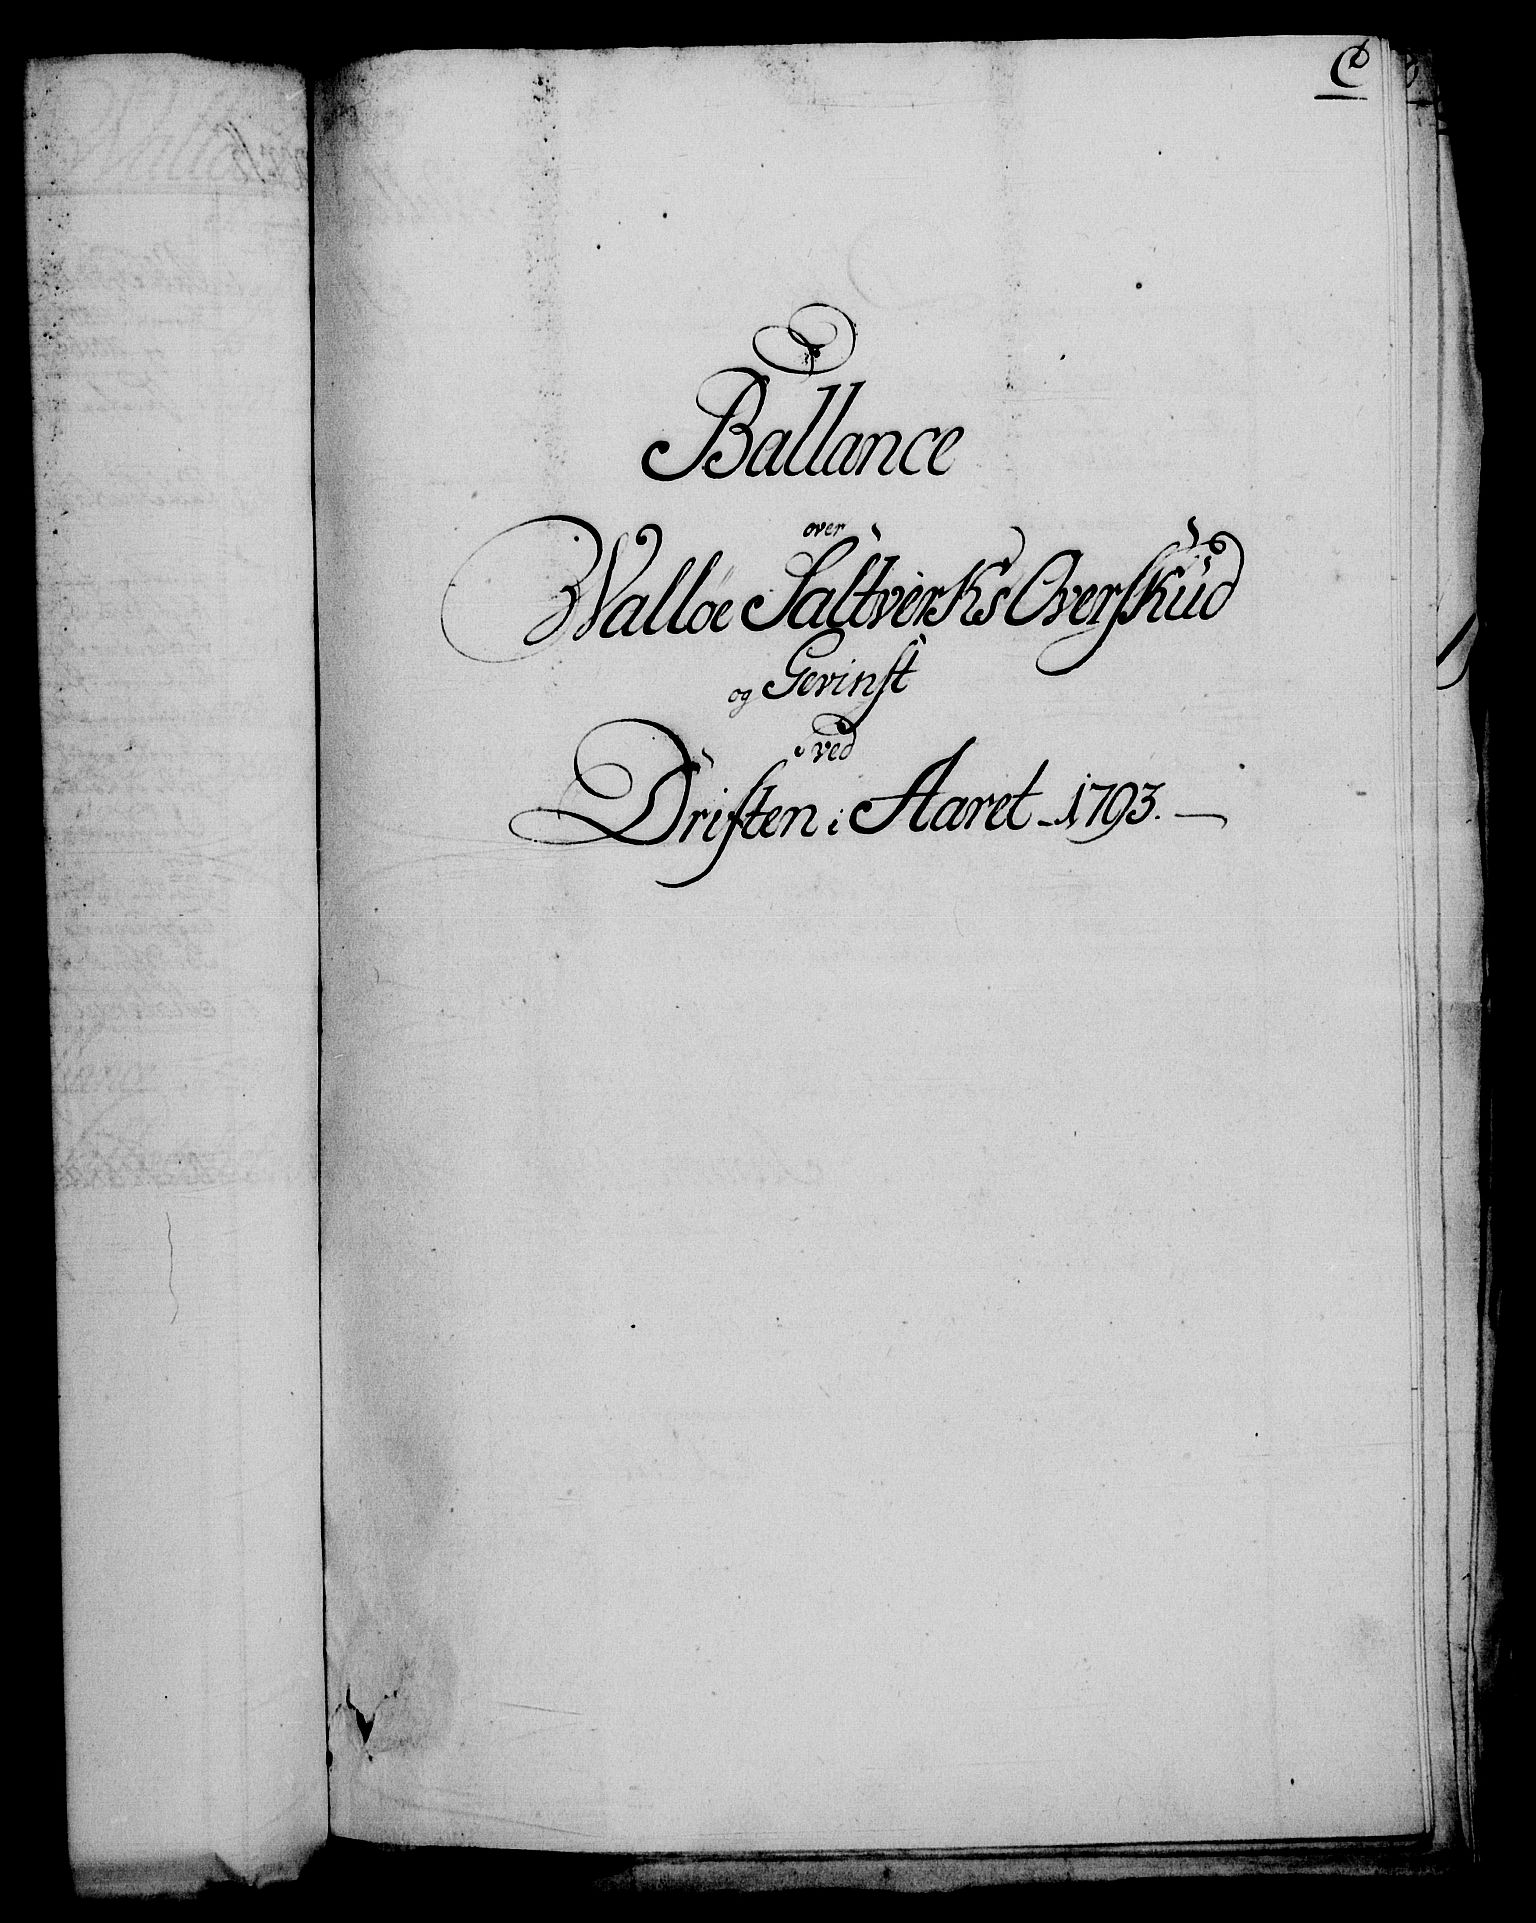 C
Ballance
over
Walløe Saltverks Overskud
og Gevinst
ved
Driften i Aaret 1793.